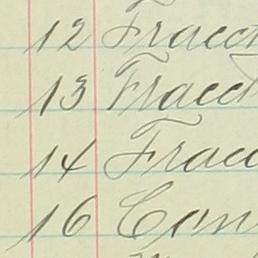 12 Fract
13 Fract
14 Frac
16 Con